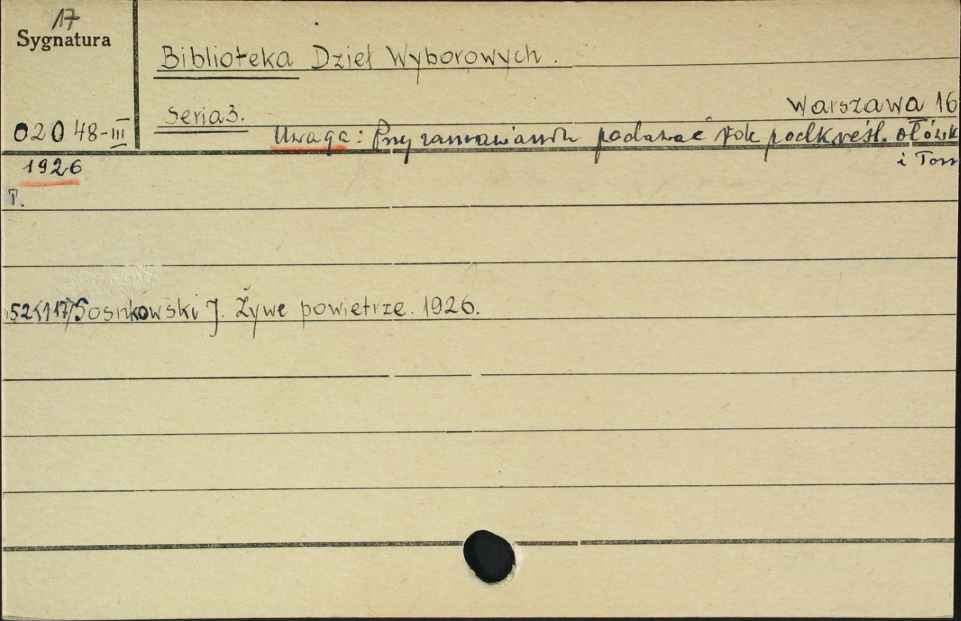 17
Sygnatura
Biblioteka Dzieł Wyborowych.
Seria 3.
Warszawa 16
02048-III
Uwaga: Przy zamawianiu podawać rok podkreśl. ołówk
i Tom
1926
T.
52(117) Sosnkowski J. Żywe powietrze. 1926.